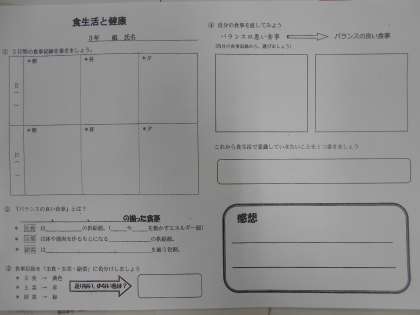 食生活と健康
3年　　組　氏名
① 2日間の食事記録を書きましょう。
＊朝　＊昼　＊夕
＊朝　＊昼　＊夕
② 「バランスの良い食事」とは？
、　　、　　の揃った食事
＊ 主食 は　　の供給源。(　　や　　を動かすエネルギー源)
＊ 主菜 は体や筋肉を作るもとになる　　の供給源。
＊ 副菜 は　　を補う役割。
③ 食事記録を「主食・主菜・副菜」に色分けしましょう
＊ 主食 → 黄色
＊ 主菜 → 赤
＊ 副菜 → 緑
④ 自分の食事を直してみよう
バランスの悪い食事　バランスの良い食事
(自分の食事記録から、選びましょう)
これから食生活で意識していきたいことを1つ書きましょう
感想